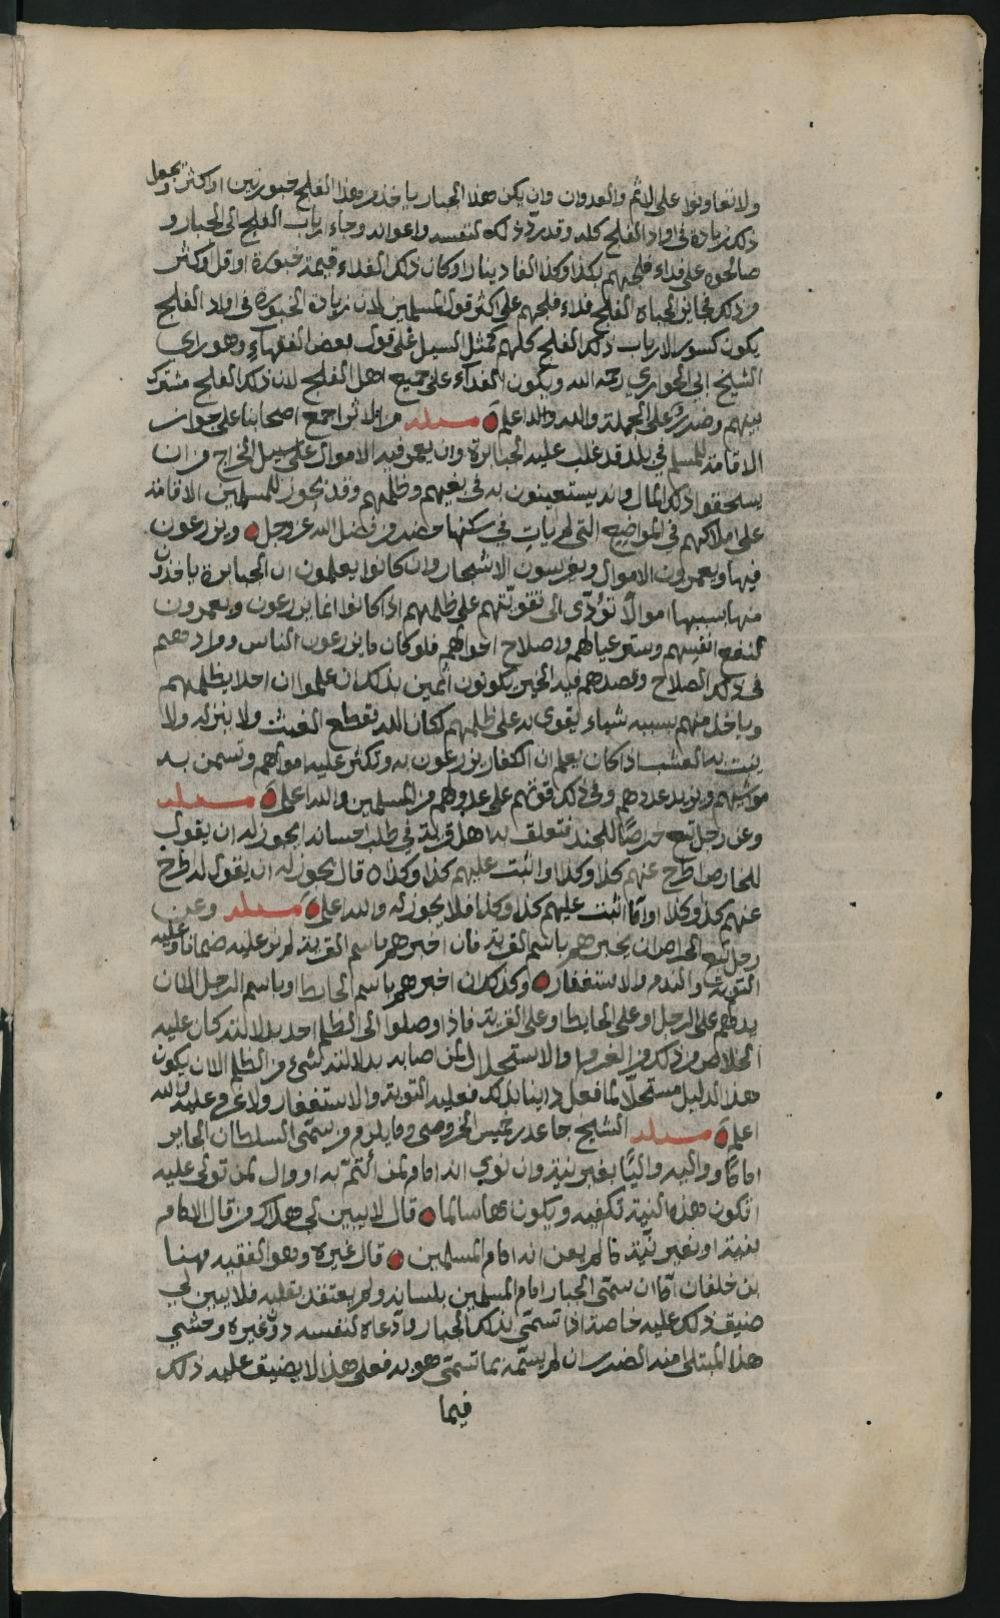 ولا تعاونوا على الاثم والعدوان وان يكن هذا الجبار ياخذ من هذا الفلج خبورتين او اكثر ويجعل
ذلك زيادة في اواد الفلج كله وقد رد ذلك لنفسه واعوانه وجاء ارباب الفلج الى الجبار و
صالحوه على فداء فلجهم بكذا وكذا الفا دينارا وكان ذلك الفداء قيمة خبورة او اقل او كثر
الفلج فداء فلجهم على اكثر قول المسلمين لان زيادة الخبورة في اواد الفلج
يكون كسور الارباب ذلك الفلج كلهم كمثل السيل على قول بعض الفقهاء وهو راي
الشيخ ابي الحواري رحمه الله ويكون الفداء على جميع اهل الفلج لان ذلك الفلج مشترك
بينهم وضرره على الجملة والله اعلم مسئله من الاثر اجمع اصحابنا على جواز
الاقامة للمسلم في بلد قد غلب عليه الجبابرة وان يعمر فيه الاموال على سبيل الخراج من ان
يستحقوا ذلك المال وانه يستعينون به في بغيهم وظلمهم وقد يجوز للمسلمين الاقامة
على املاكهم في المواضع التي لم يات في سكنها حضر من فضل الله عز وجل ويزرعون
فيها ويعمرون الاموال ويغرسون الاشجار وان كانوا يعلمون ان الجبابرة ياخذون
منها بسببها اموالا تؤدي الى تقويتهم على ظلمهم اذا كانوا انما يزرعون ويعمرون
لنفع انفسهم وستر عيالهم واصلاح احوالهم فلو كان ما يزرعون الناس ومرادهم
في ذلك الصلاح وقصدهم فيه الخير يكونون آثمين بذلك ان علموا ان احدا يظلمهم
وياخذ منهم بسببه شياء يقوى به على ظلمهم لكان الله تقطع الغيث ولا ينزله ولا
ينبت به العشب اذا كان يعلم ان الكفار يزرعون به وتكثر عليه اموالهم وتسمن به
مواشيهم ويزيد عددهم وفي ذلك قوتهم على عدوهم من المسلمين والله اعلم مسئله
وعن رجل تبع خراصا للجند فتعلق به اهل قرية في طلب احسانه ايجوز له ان يقول
للخارص اطرح عنهم كذا وكذا واثبت عليهم كذا وكذا قال يجوز له ان يقول له طرح
عنهم كذا وكذا واما اثبت عليهم كذا وكذا فلا يجوز له والله اعلم مسئله وعن
رجل تبع الخراص ان يخبرهم باسم القرية فان اخبرهم باسم القرية لم نر عليه ضمانا وعليه
التوبة والندم والاستغفار وكذلك ان اخبرهم باسم الحايط او باسم الرجل الا ان
يدلهم على الرجل وعلى الحايط وعلى القرية فاذا وصلوا الى الظلم احد بدلالته كان عليه
الخلاص من ذلك من الغرم او الاستحلال لمن اصابه بدلالته لشيء من الظلم الا ان يكون
هذا الدليل مستحلا لما فعل داينا بذلك فعليه التوبة والاستغفار ولا غرم عليه والله
اعلم مسئله الشيخ جاعد بن خميس الخروصي وما يلزم من سمى السلطان الجاير
اماما وواليه واليا بغير نية وان نوى انه امام لمن ائتم به او وال لمن تولى عليه
اتكون هذه النية تكفيه ويكون بها سالما قال لا يبين لي هلاك من قال الامام
بنية او بغير نية ما لم يعن انه امام المسلمين قال غيره وهو الفقيه مهنا
بن خلفان اما ان سمى الجبار امام المسلمين بلسانه ولم يعتقد بقلبه فلا يبين لي
ضيق ذلك عليه خاصة اذا تسمى بذلك الجبار وادعاه لنفسه دون غيره وخشي
هذا المبتلى منه الضرر ان لم يسمه بما تسمى هو به فعلى هذا لا يضيق عليه ذلك
فيما